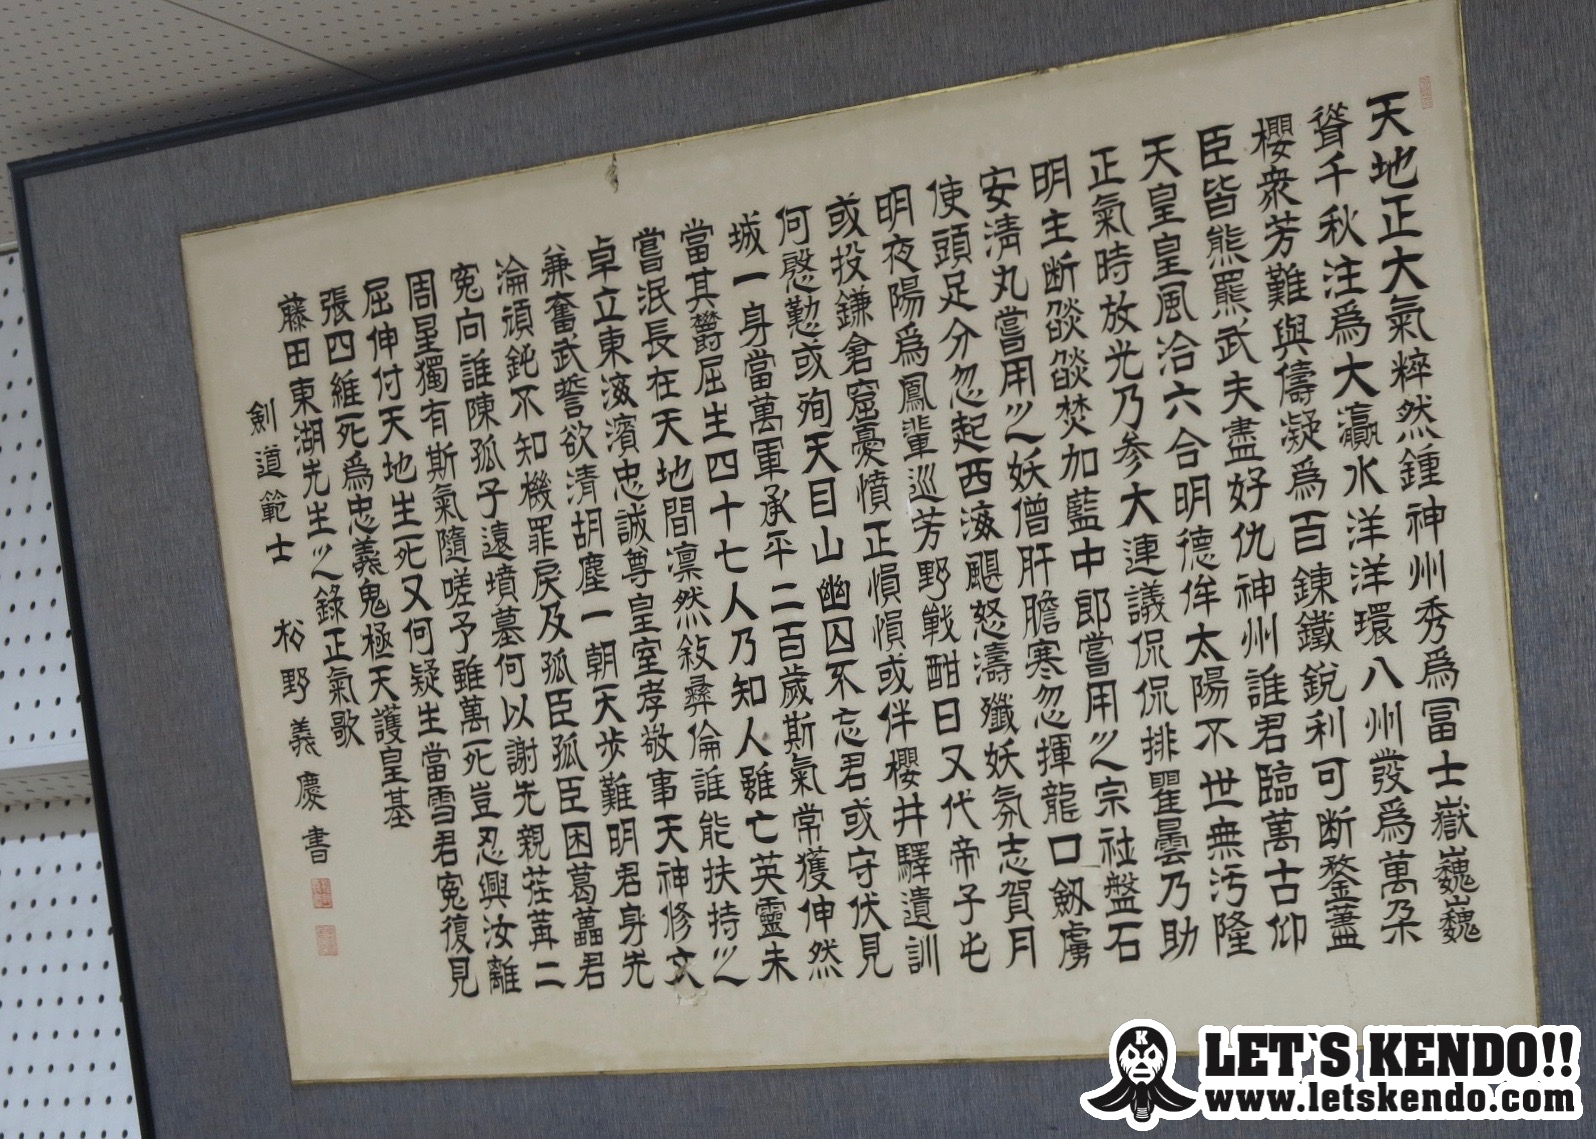 天地正大氣粹然鍾神州秀爲冨士嶽巍巍
聳千秋注爲大瀛水洋洋環八州發爲萬朶
櫻衆芳難與儔凝爲百錬鐵鋭利可断鍪藎
臣皆熊羆武夫盡好仇神州誰君臨萬古仰
天皇皇風洽六合明德侔太陽不世無汚隆
正氣時放光乃参大連議侃侃排瞿曇乃助
明主断燄燄焚加藍中郎嘗用之宗社盤石
安清丸嘗用之妖僧肝膽寒忽揮龍口劔虜
使頭足分忽起西海颶怒濤殲妖氛志賀月
明夜陽爲鳳輦巡芳野戦酣日又代帝子屯
或投鎌倉窟憂憤正愪愪或伴櫻井驛遺訓
何慇懃或殉天目山幽囚不忘君或守伏見
城一身當萬軍承平二百歳斯氣常獲伸然
當其欝屈生四十七人乃知人雖亡英靈未
嘗泯長在天地間凛然敍彝倫誰能扶持之
卓立東海濱忠誠尊皇室孝敬事天神修文
兼奮武誓欲清胡塵一朝天歩難明君身先
淪頑鈍不知機罪戻及孤臣孤臣困葛藟君
寃向誰陳孤子遠墳墓何以謝先親荏苒二
周星獨有斯氣隨嗟予雖萬死豈忍與汝離
屈伸付天地生死又何疑生當雪君寃復見
張四維死爲忠義鬼極天護皇基
藤田東湖先生之錄正氣歌
劍道範士 松野義慶書
LET`S KENDO!!
www.letskendo.com